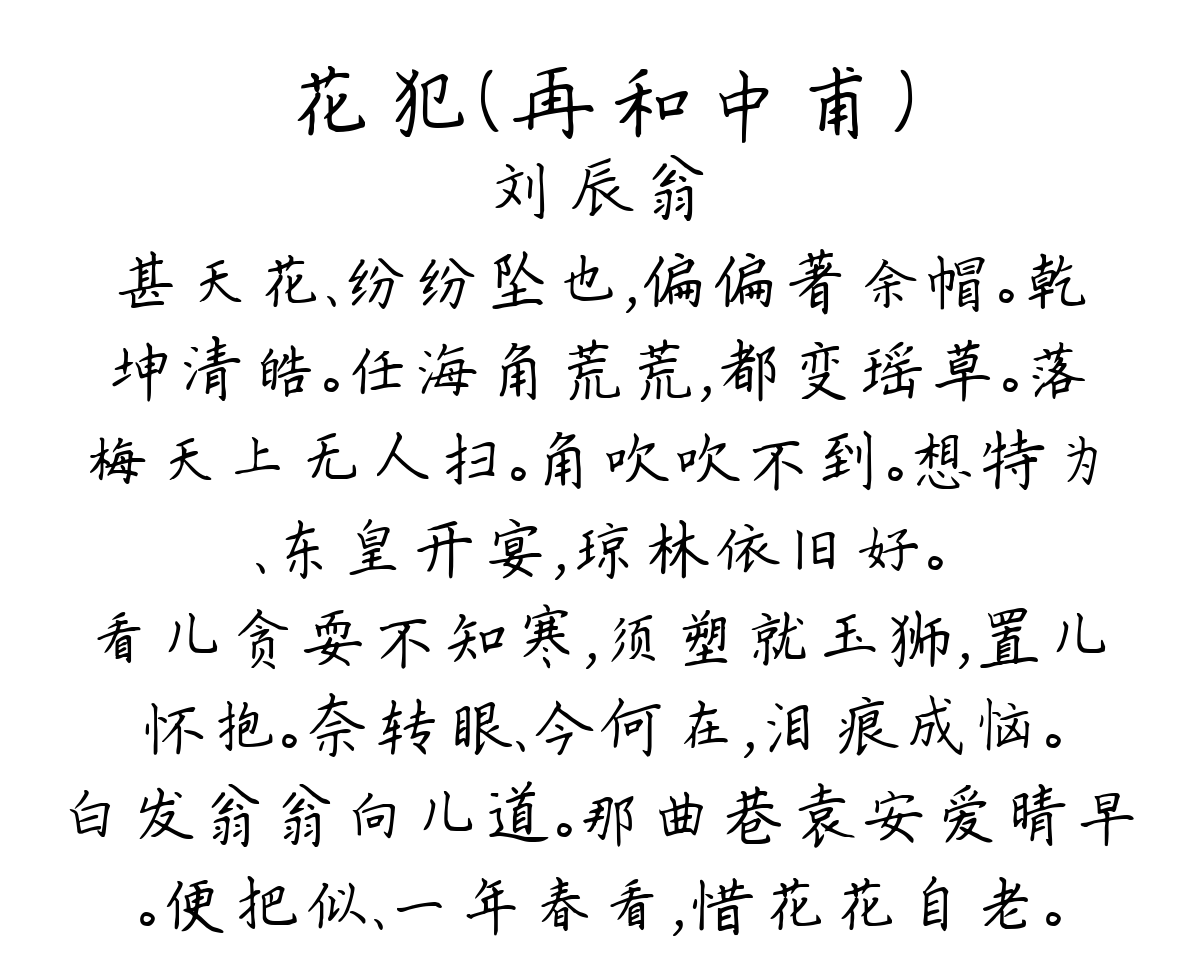 花犯(再和中甫)
刘辰翁
甚天花、纷纷坠也,偏偏著余帽。乾
坤清皓。任海角荒荒,都变瑶草。落
梅天上无人扫。角吹吹不到。想特为
、东皇开宴,琼林依旧好。
看儿贪耍不知寒,须塑就玉狮,置儿
怀抱。奈转眼、今何在,泪痕成恼。
白发翁翁向儿道。那曲巷袁安爱晴早
。便把似、一年春看,惜花花自老。